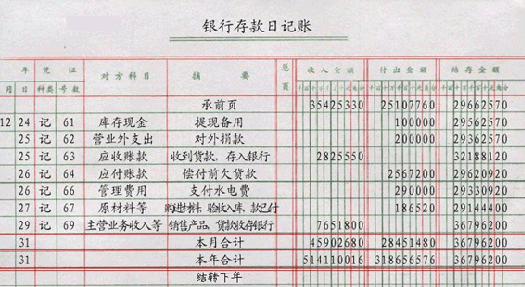 银行存款日记账
年 凭 证 对方科目 摘要 总页 收入金额 付出金额 结存金额
月 日 种类 号数
承前页 35425330 25107760 29662570
12 24 记 61 库存现金 提现备用 100000 29562570
25 记 62 营业外支出 对外捐款 200000 29362570
25 记 63 应收账款 收到货款，存入银行 2825550 32188120
26 记 64 应付账款 偿付前欠货款 2567200 29620920
26 记 66 管理费用 支付水电费 290000 29330920
27 记 67 原材料等 购进材料，验收入库，款已付 186520 29144400
29 记 69 主营业务收入等 销售产品，货款收存银行 7651800 36796200
31 本月合计 45902680 28451480 36796200
31 本年合计 514110016 318656576 36796200
结转下年